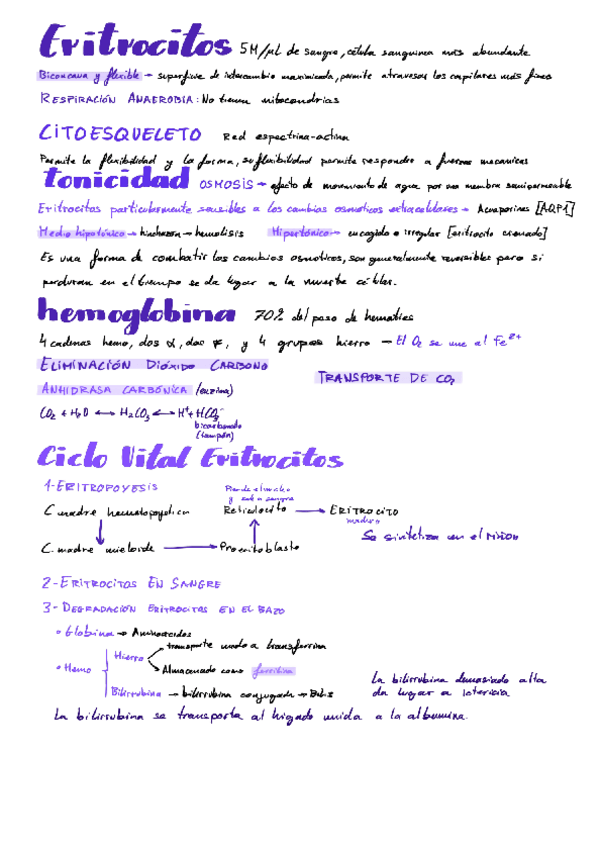 Eritrocitos 5M/µl de sangre, célula sanguínea más abundante
Biconcava y flexible → superficie de intercambio maximizada, permite atravesar los capilares más finos
RESPIRACIÓN ANAEROBIA: No tienen mitocondrias
CITOESQUELETO Red espectrina-actina
Permite la flexibilidad y la forma, su flexibilidad permite responder a fuerzas mecanicas
tonicidad OSMOSIS → efecto de movimiento de agua por una membra semipermeable
Eritrocitos particularmente sensibles a los cambios osmoticos extracelulares → Acuaporinas [AQP1]
Medio hipotónico → hinchazon → hemolisis Hipertónico → encogido e irregular [eritrocito crenado]
Es una forma de combatir los cambios osmoticos, son generalmente reversibles pero si
perduran en el tiempo se da lugar a la muerte celular.
hemoglobina 70% del peso de hematies
4 cadenas hemo, dos α, dos y 4 grupos hierro → El O2 se une al Fe2+
ELIMINACIÓN DIÓXIDO CARBONO
TRANSPORTE DE CO2
ANHIDRASA CARBÓNICA (enzima)
CO2 + H2O ↔ H2CO3 ↔ H+ + HCO3-
bicarbonato
(tampón)
Ciclo Vital Eritrocitos
1-ERITROPOYESIS
Pierde el nucleo
y sale a sangre
C madre hematopoyetica Reticulocito → ERITROCITO
maduro
Se sintetiza en el riñón
C. madre mieloide → Proeritoblasto
2-ERITROCITOS EN SANGRE
3-DEGRADACIÓN ERITROCITOS EN EL BAZO
• Globina → Aminoacidos
transporte unido a transferrina
Hierro
• Hemo
Almacenado como ferritina
Bilirrubina → bilirrubina conjugada → Bilis
La bilirrubina demasiado alta
da lugar a ictericia
La bilirrubina se transporta al higado unida a la albumina.